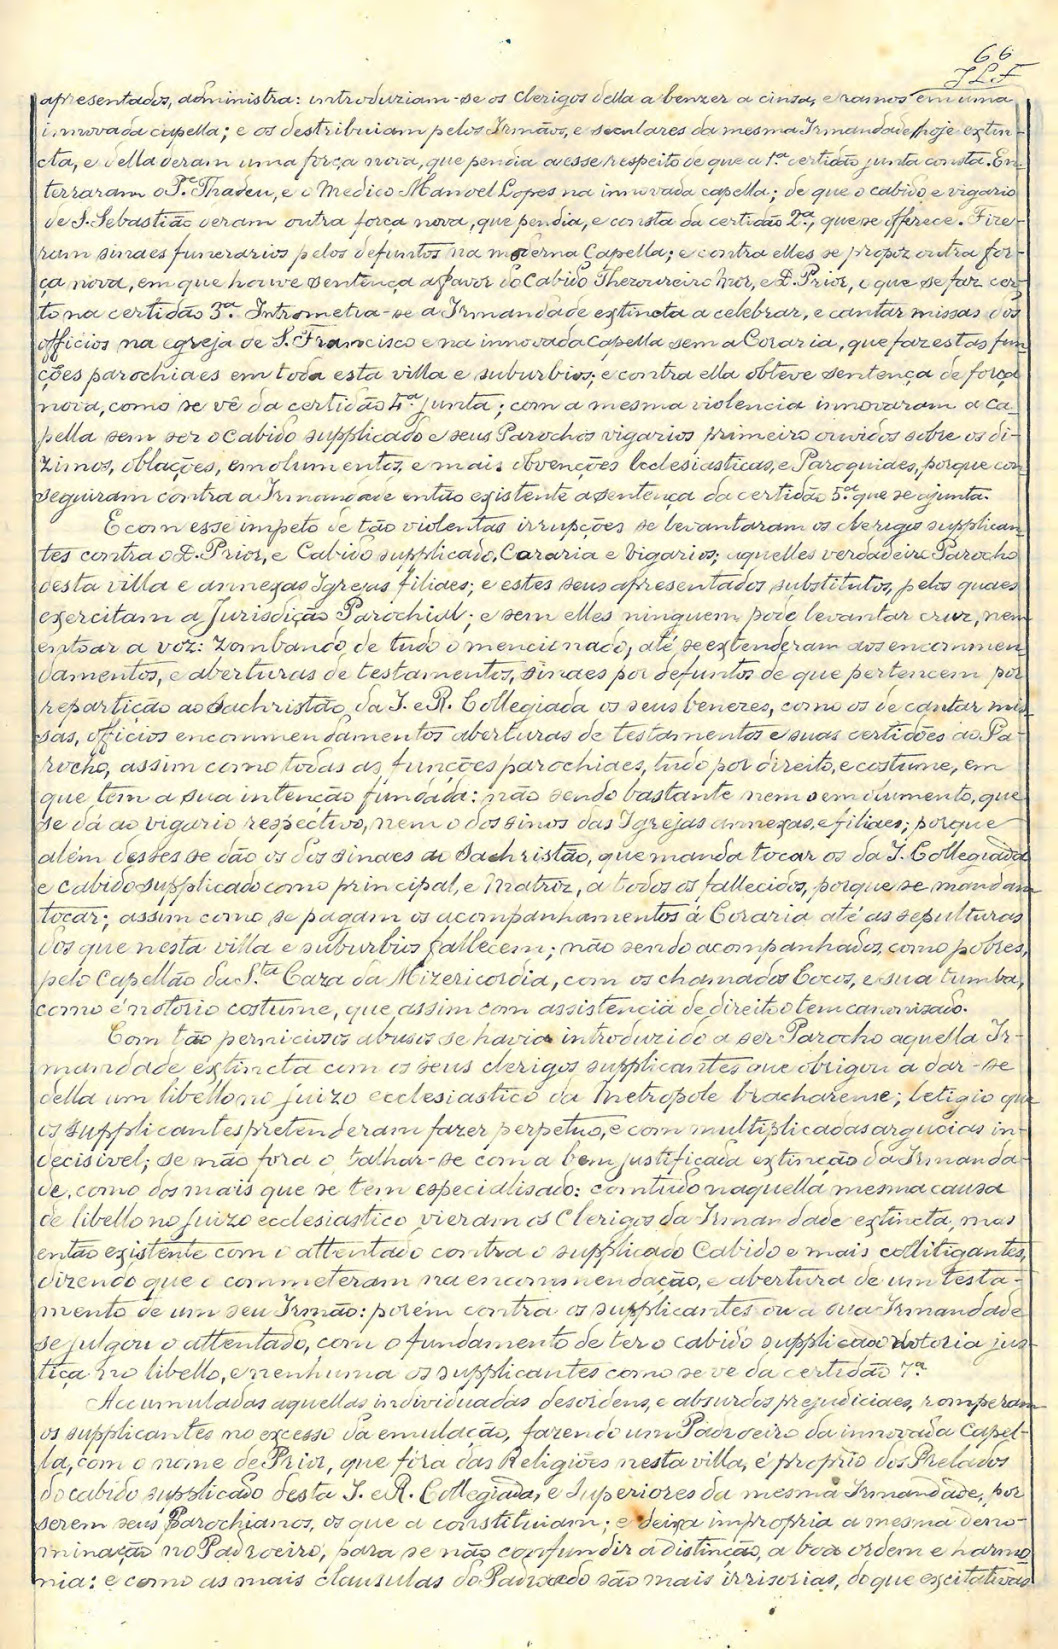 66
J L F
apresentados, administra: introduziam-se os clerigos della a benzer a cinsa, e ramos em uma
innovada capella; e os destribuiam pelos Irmãos, e seculares da mesma Irmandade, hoje extin-
cta, e della deram uma força nova, que pendia a esse respeito de que a 1ª certidão junta consta. En-
terraram o Pe. Thadeu, e o Medico Manoel Lopes na innovada capella; de que o cabido e vigario
de S. Sebastião deram outra força nova, que pendia, e consta da certidão 2ª, que se offerece. Fize-
ram sinaes funerarios pelos defuntos na moderna Capella; e contra elles se propoz outra for-
ça nova, em que houve sentença a favor do Cabido Thezoureiro Mor, e D. Prior, o que se faz cer-
to na certidão 3ª. Intrometia-se a Irmandade extincta a celebrar, e cantar missas dos
officios na egreja de S. Francisco e na innovada Capella sem a Coraria, que faz estas fun-
ções parochiaes em toda esta villa e suburbios; e contra ella obteve sentença de força
nova, como se vê da certidão 4ª junta; com a mesma violencia innovaram a ca-
pella sem ser o Cabido supplicado e seus Parochos vigarios primeiro ouvidos sobre os di-
zimos, oblações, emolumentos, e mais obvenções Ecclesiasticas, e Paroquiaes, porque con-
seguiram contra a Irmandade então existente a sentença da certidão 5ª que se ajunta.
E com esse impeto de tão violentas irrupções se levantaram os clerigos supplican-
tes contra o D. Prior, e Cabido supplicado, Coraria e Vigarios; aquelles verdadeiro Parocho
desta villa e annexas Igrejas filiaes; e estes seus apresentados substitutos, pelos quaes
exercitam a Jurisdição Parochial; e sem elles ninguem pode levantar cruz, nem
entoar a voz: Zombando de tudo o mencionado, até se extenderam aos encommen-
damentos, e aberturas de testamentos, sinaes por defuntos de que pertencem por
repartição ao Sachristão da I. e R. Collegiada os seus benezes, como os de cantar mis-
sas, officios encommendamentos aberturas de testamentos e suas certidões ao Pa-
rocho, assim como todas as funcções parochiaes, tudo por direito, e costume, em
que tem a sua intenção fundada: não sendo bastante nem o emolumento, que
se dá ao vigario respectivo, nem o dos sinos das Igrejas annexas, e filiaes; porque
além desses se dão os dos sinaes ao Sachristão, que manda tocar os da I. Collegiada
e cabido supplicado como principal, e Matriz, a todos os fallecidos, porque se mandam
tocar; assim como se pagam os acompanhamentos á Coraria até as sepulturas
dos que nesta villa e suburbios fallecem; não sendo acompanhados, como pobres,
pelo Capellão da Sta. Caza da Mizericordia, com os chamados Cocos, e sua tumba,
como é notorio costume, que assim com assistencia de direito o tem canonisado.
Com tão perniciosos abusos se havia introduzido a ser Parocho aquella Ir-
mandade extincta com os seus clerigos supplicantes que obrigou a dar-se
della um libello no juizo ecclesiastico da Metropole bracharense; letigio que
os supplicantes pretenderam fazer perpetuo, e com multiplicadas argucias in-
decisivel; se não fora o talhar-se com a bem justificada extincção da Irmanda-
de, como dos mais que se tem especialisado: comtudo naquella mesma causa
de libello no Juizo ecclesiastico vieram os Clerigos da Irmandade extincta, mas
então existente com o attentado contra o supplicado Cabido e mais collitigantes,
dizendo que o commeteram na encommendação, e abertura de um testa-
mento de um seu Irmão: porém contra os supplicantes ou a sua Irmandade
se julgou o attentado, com o fundamento de ter o cabido supplicado notoria jus-
tiça no libello, e nenhuma os supplicantes como se ve da certidão 7ª
Accumuladas aquellas individuadas desordens, e absurdos prejudiciaes, romperam
os supplicantes no excesso da emulação, fazendo um Padroeiro da innovada Capel-
la, com o nome de Prior, que fóra das Religiões nesta villa, é proprio dos Prelados
do cabido supplicado desta I. e R. Collegiada, e Superiores da mesma Irmandade, por
serem seus Parochianos, os que a constituiam; e deixa impropria a mesma deno-
minação no Padroeiro, para se não confundir a distinção, a boa ordem e harmo-
nia: e como as mais clausulas do Padroado são mais irrisorias, do que excitativas